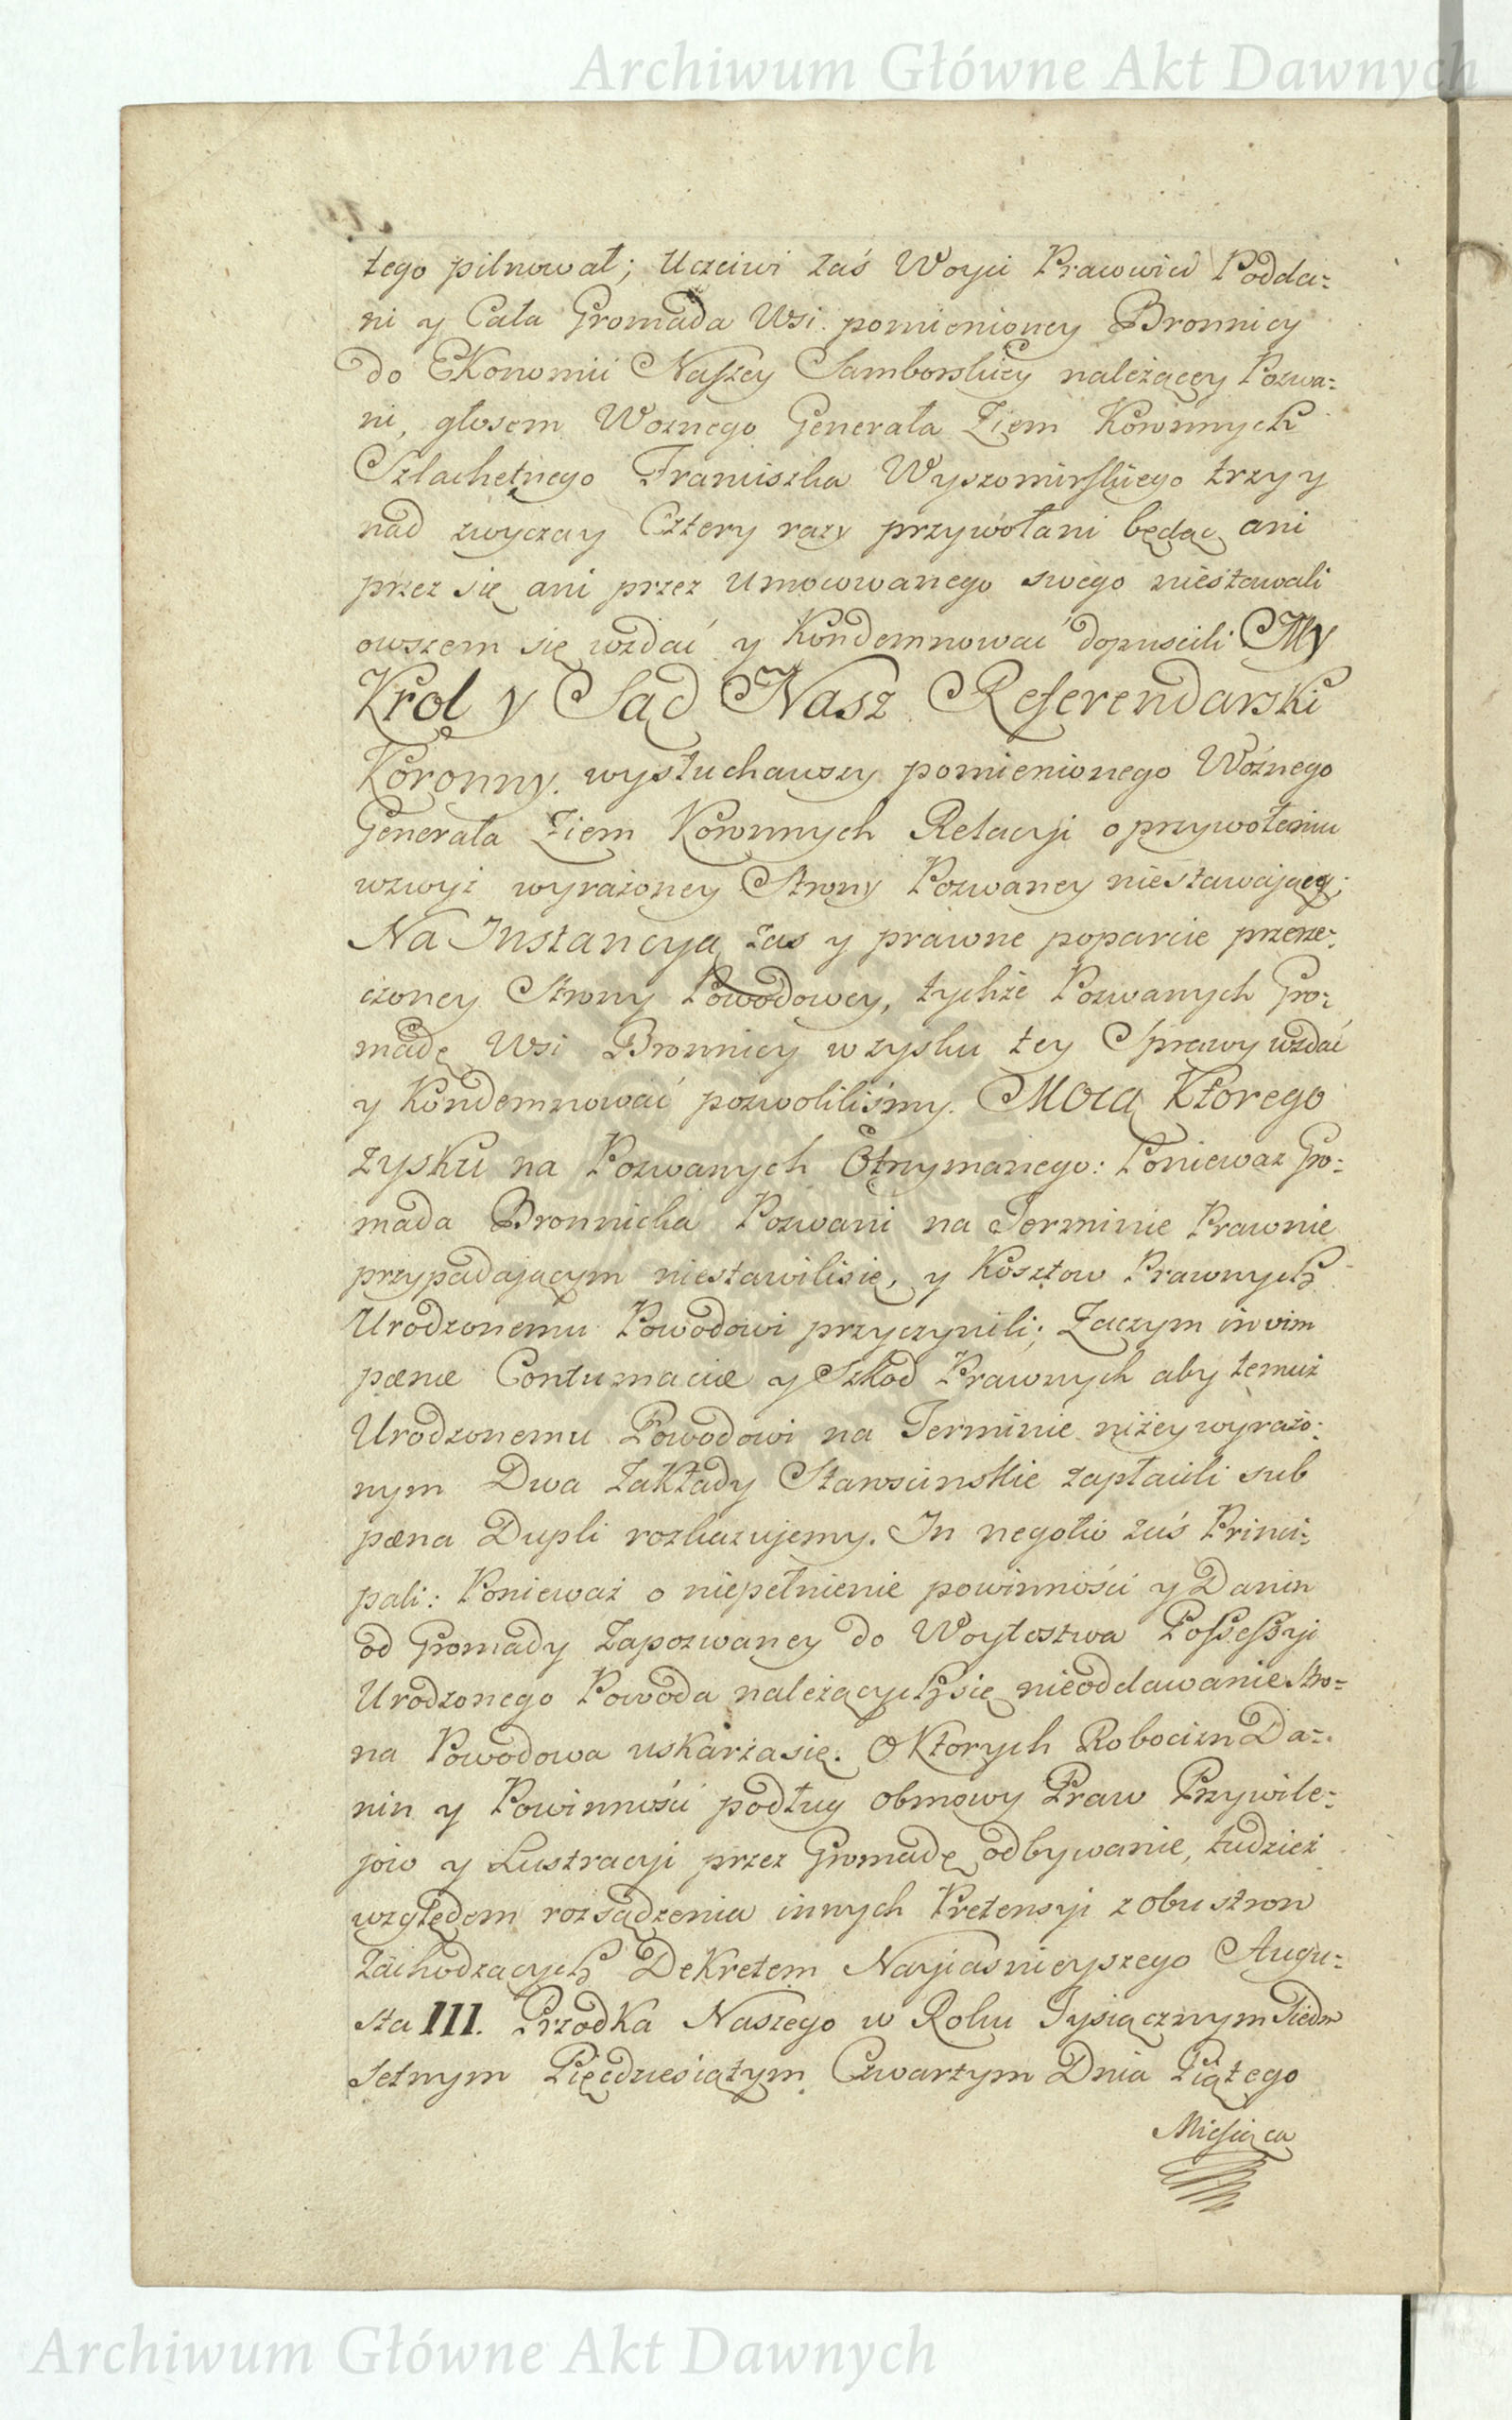 Archiwum Główne Akt Dawnych
tego pilnował; Uczciwi zaś Woyci Prawowici Podda-
ni y Cała Gromada Wsi pomienioney Bronnicy
do Ekonomii Naszey Samborskiey należącey Pozwa-
ni, głosem Woznego Generała Ziem Koronnych
Szlachetnego Franciszka Wyszomirskiego trzy y
nad zwyczay Cztery razy przywołani będąc, ani
przez się ani przez Umocowanego swego niestawali
owszem się wzdać y Kondemnować dopuscili My
Krol y Sąd Nasz Referendarski
Koronny. wysłuchawszy pomienionego Woźnego
Generała Ziem Koronnych Relacyi o przywołaniu
wzwyż wyrażoney Strony Pozwaney niestawaiącey;
Na Instancyą zas y prawne poparcie przerze-
czoney Strony Powodowey, tychże Pozwanych Gro-
madę Wsi Bronnicy w zysku tey Sprawy wzdać
y Kondemnować pozwoliliśmy. Mocą Ktorego
zysku na Pozwanych Otrzymanego: Poniewaz Gro-
mada Bronnicka Pozwani na Terminie Prawnie
przypadaiącym niestawilisię, y Kosztow Prawnych
Urodzonemu Powodowi przyczynili; Zaczym in vim
pænæ Contumaciæ y Szkod Prawnych aby temuż
Urodzonemu Powodowi na Terminie niżey wyrażo-
nym Dwa Zakłady Starościnskie zapłacili sub
pæna Dupli rozkazujemy. In negotio zaś Princi-
pali: Ponieważ o niepełnienie powinności y Danin
od Gromady Zapozwaney do Woytostwa Possessyi
Urodzonego Powoda należących się nieoddawanie Stro-
na Powodowa uskarżasię. O Ktorych Robocizn Da-
nin y Powinności podług obmowy Praw Przywile-
jow y Lustracyi przez Gromadę odbywanie, tudzież
względem rozsądzenia innych Pretensyi z obu stron
Zachodzących Dekretem Nayiaśnieyszego Augu-
sta III. Przodka Naszego w Roku Tysiącznym Siedm
setnym Pięćdziesiątym Czwartym Dnia Piątego
Miesiąca
Archiwum Główne Akt Dawnych